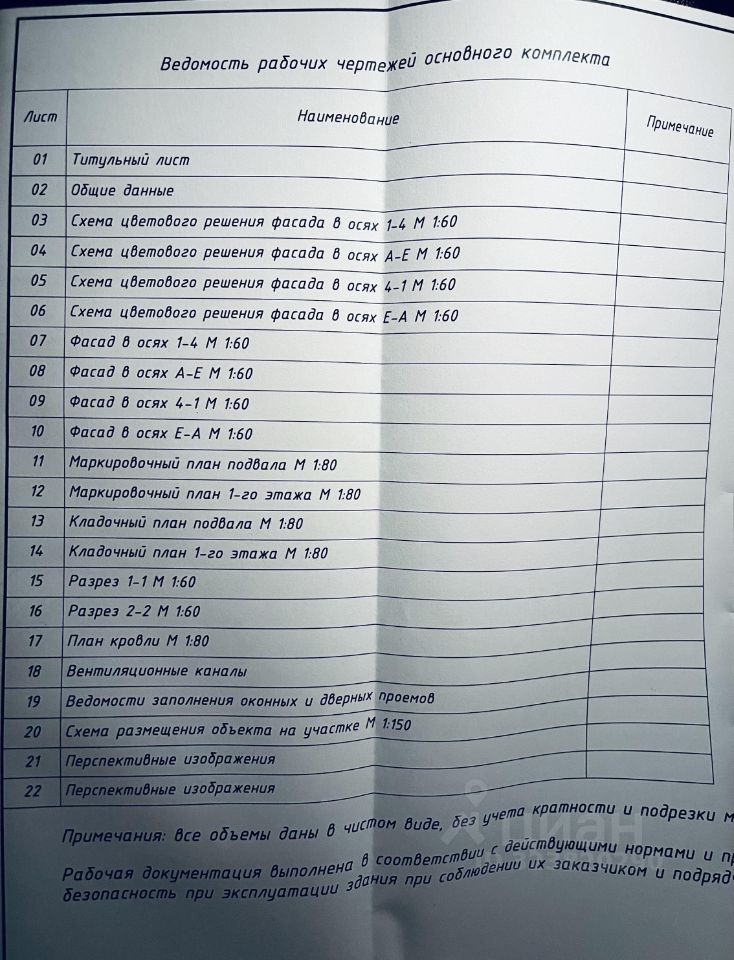 Ведомость рабочих чертежей основного комплекта
Лист Наименование Примечание
01 Титульный лист
02 Общие данные
03 Схема цветового решения фасада в осях 1-4 М 1:60
04 Схема цветового решения фасада в осях А-Е М 1:60
05 Схема цветового решения фасада в осях 4-1 М 1:60
06 Схема цветового решения фасада в осях Е-А М 1:60
07 Фасад в осях 1-4 М 1:60
08 Фасад в осях А-Е М 1:60
09 Фасад в осях 4-1 М 1:60
10 Фасад в осях Е-А М 1:60
11 Маркировочный план подвала М 1:80
12 Маркировочный план 1-го этажа М 1:80
13 Кладочный план подвала М 1:80
14 Кладочный план 1-го этажа М 1:80
15 Разрез 1-1 М 1:60
16 Разрез 2-2 М 1:60
17 План кровли М 1:80
18 Вентиляционные каналы
19 Ведомости заполнения оконных и дверных проемов
20 Схема размещения объекта на участке М 1:150
21 Перспективные изображения
22 Перспективные изображения
Примечания: все объемы даны в чистом виде, без учета кратности и подрезки м
Рабочая документация выполнена в соответствии с действующими нормами и пр
безопасность при эксплуатации здания при соблюдении их заказчиком и подряд
циан